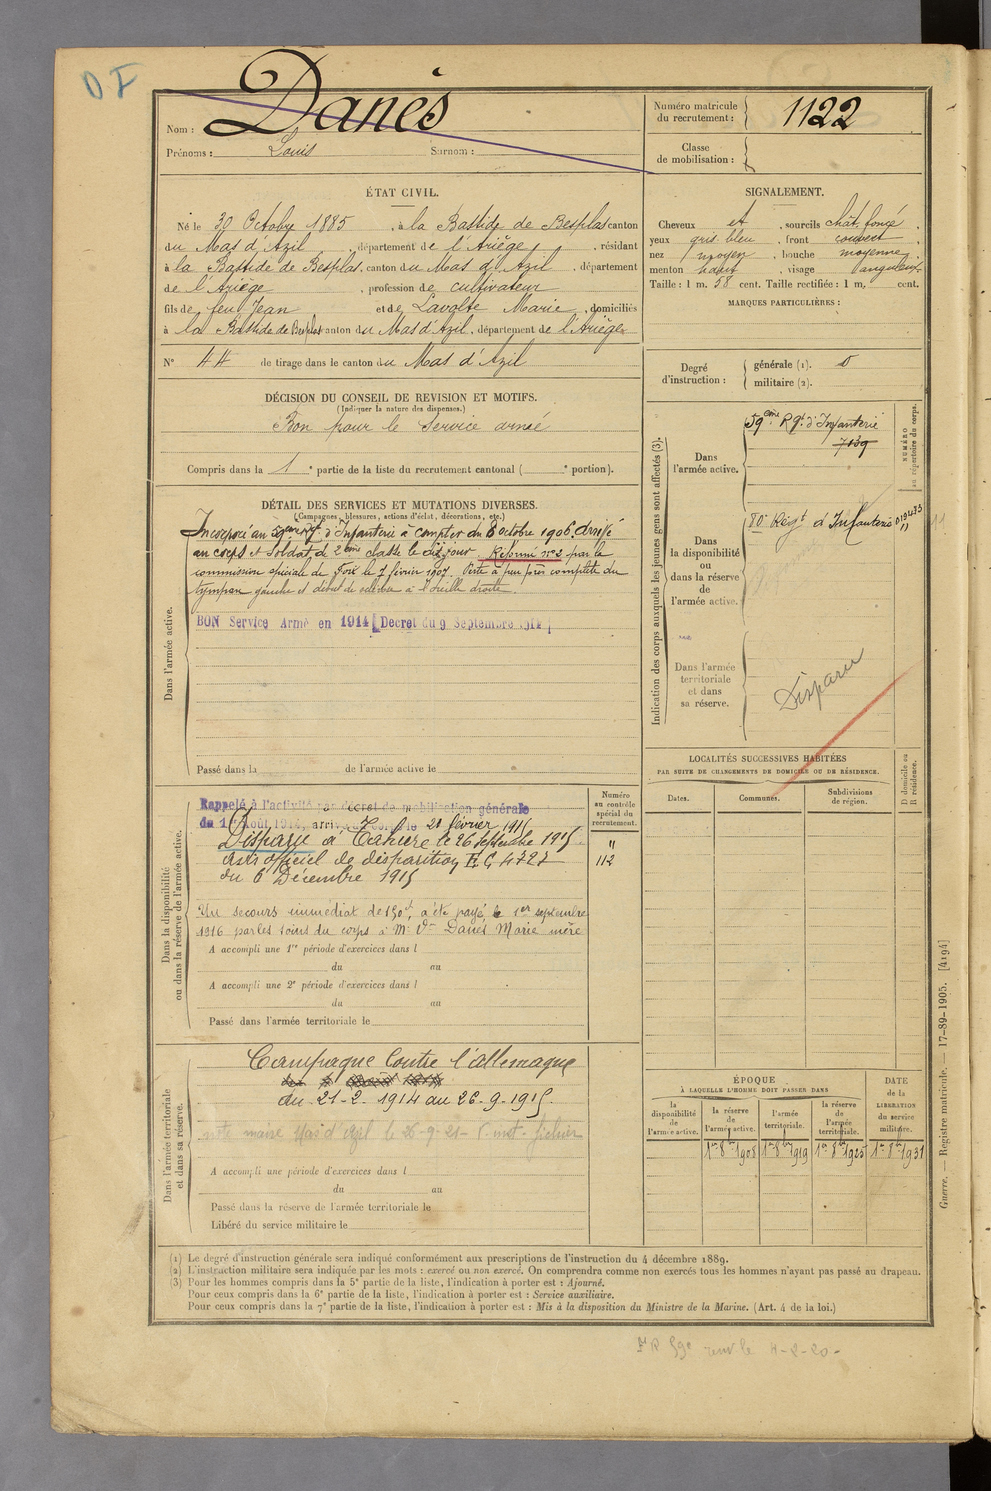 DF
Nom : Danès
Prénoms : Louis Surnom :
Numéro matricule du recrutement : 1122
Classe de mobilisation :
ÉTAT CIVIL.
Né le 30 Octobre 1885, à la Bastide de Besplas canton
du Mas d'Azil, département de l'Ariège, résidant
à la Bastide de Besplas, canton du Mas d'Azil, département
de l'Ariège, profession de cultivateur
fils de feu Jean et de Lavolte Marie, domiciliés
à la Bastide de Besplas canton du Mas d'Azil, département de l'Ariège
N° 44 de tirage dans le canton du Mas d'Azil
SIGNALEMENT.
Cheveux et, sourcils chât. foncé,
yeux gris bleu, front couvert,
nez moyen, bouche moyenne,
menton haut, visage anguleux
Taille : 1 m. 58 cent. Taille rectifiée : 1 m. cent.
MARQUES PARTICULIÈRES :
Degré d'instruction :
générale (1). 0
militaire (2).
DÉCISION DU CONSEIL DE REVISION ET MOTIFS.
(Indiquer la nature des dispenses.)
Bon pour le service armé
Compris dans la 1e partie de la liste du recrutement cantonal ( e portion).
DÉTAIL DES SERVICES ET MUTATIONS DIVERSES.
(Campagnes, blessures, actions d'éclat, décorations, etc.)
Dans l'armée active.
Incorporé au 59ème Rgt d'Infanterie à compter du 8 octobre 1906. Arrivé
au corps et Soldat de 2ème classe le dit jour. Réformé n°2 par la
commission spéciale de Foix le 7 février 1907. Perte à peu près complète du
tympan gauche et début de sclérose à l'oreille droite.
BON Service Armé en 1914 [Decret du 9 Septembre 1914]
Passé dans la de l'armée active le
Indication des corps auxquels les jeunes gens sont affectés (3).
NUMÉRO au répertoire du corps.
Dans l'armée active.
59ème Rgt d'Infanterie
7139
Dans la disponibilité ou dans la réserve de l'armée active.
80e Régt d'Infanterie 019433
Dans l'armée territoriale et dans sa réserve.
Disparu
LOCALITÉS SUCCESSIVES HABITÉES
PAR SUITE DE CHANGEMENTS DE DOMICILE OU DE RÉSIDENCE.
Dates. Communes. Subdivisions de région. D domicile ou R résidence.
Dans la disponibilité ou dans la réserve de l'armée active.
Numéro au contrôle spécial du recrutement.
Rappelé à l'activité par décret de mobilisation générale
du 1er Août 1914, arrivé au corps le 21 février 1915
Disparu à Tahure le 26 septembre 1915. "
avis officiel de disparition E.C. 4727 112
du 6 Décembre 1915
Un secours immédiat de 150f, a été payé le 1er septembre
1916 par les soins du corps à Me Vve Danès Marie mère
A accompli une 1re période d'exercices dans l
du au
A accompli une 2e période d'exercices dans l
du au
Passé dans l'armée territoriale le
Dans l'armée territoriale et dans sa réserve.
Campagne Contre l'allemagne
du 21-2-1914 au 26-9-1915.
note maire Mas d'Azil le 26-9-21
A accompli une période d'exercices dans l
du au
Passé dans la réserve de l'armée territoriale le
Libéré du service militaire le
ÉPOQUE
À LAQUELLE L'HOMME DOIT PASSER DANS
DATE de la LIBÉRATION du service militaire.
la disponibilité de l'armée active. la réserve de l'armée active. l'armée territoriale. la réserve de l'armée territoriale.
1er 8bre 1908 1er 8bre 1919 1er 8bre 1925 1er 8bre 1931
(1) Le degré d'instruction générale sera indiqué conformément aux prescriptions de l'instruction du 4 décembre 1889.
(2) L'instruction militaire sera indiquée par les mots : exercé ou non exercé. On comprendra comme non exercés tous les hommes n'ayant pas passé au drapeau.
(3) Pour les hommes compris dans la 5e partie de la liste, l'indication à porter est : Ajourné.
Pour ceux compris dans la 6e partie de la liste, l'indication à porter est : Service auxiliaire.
Pour ceux compris dans la 7e partie de la liste, l'indication à porter est : Mis à la disposition du Ministre de la Marine. (Art. 4 de la loi.)
Guerre. — Registre matricule. — 17-89-1905. [4194]
59e le 4-2-20-